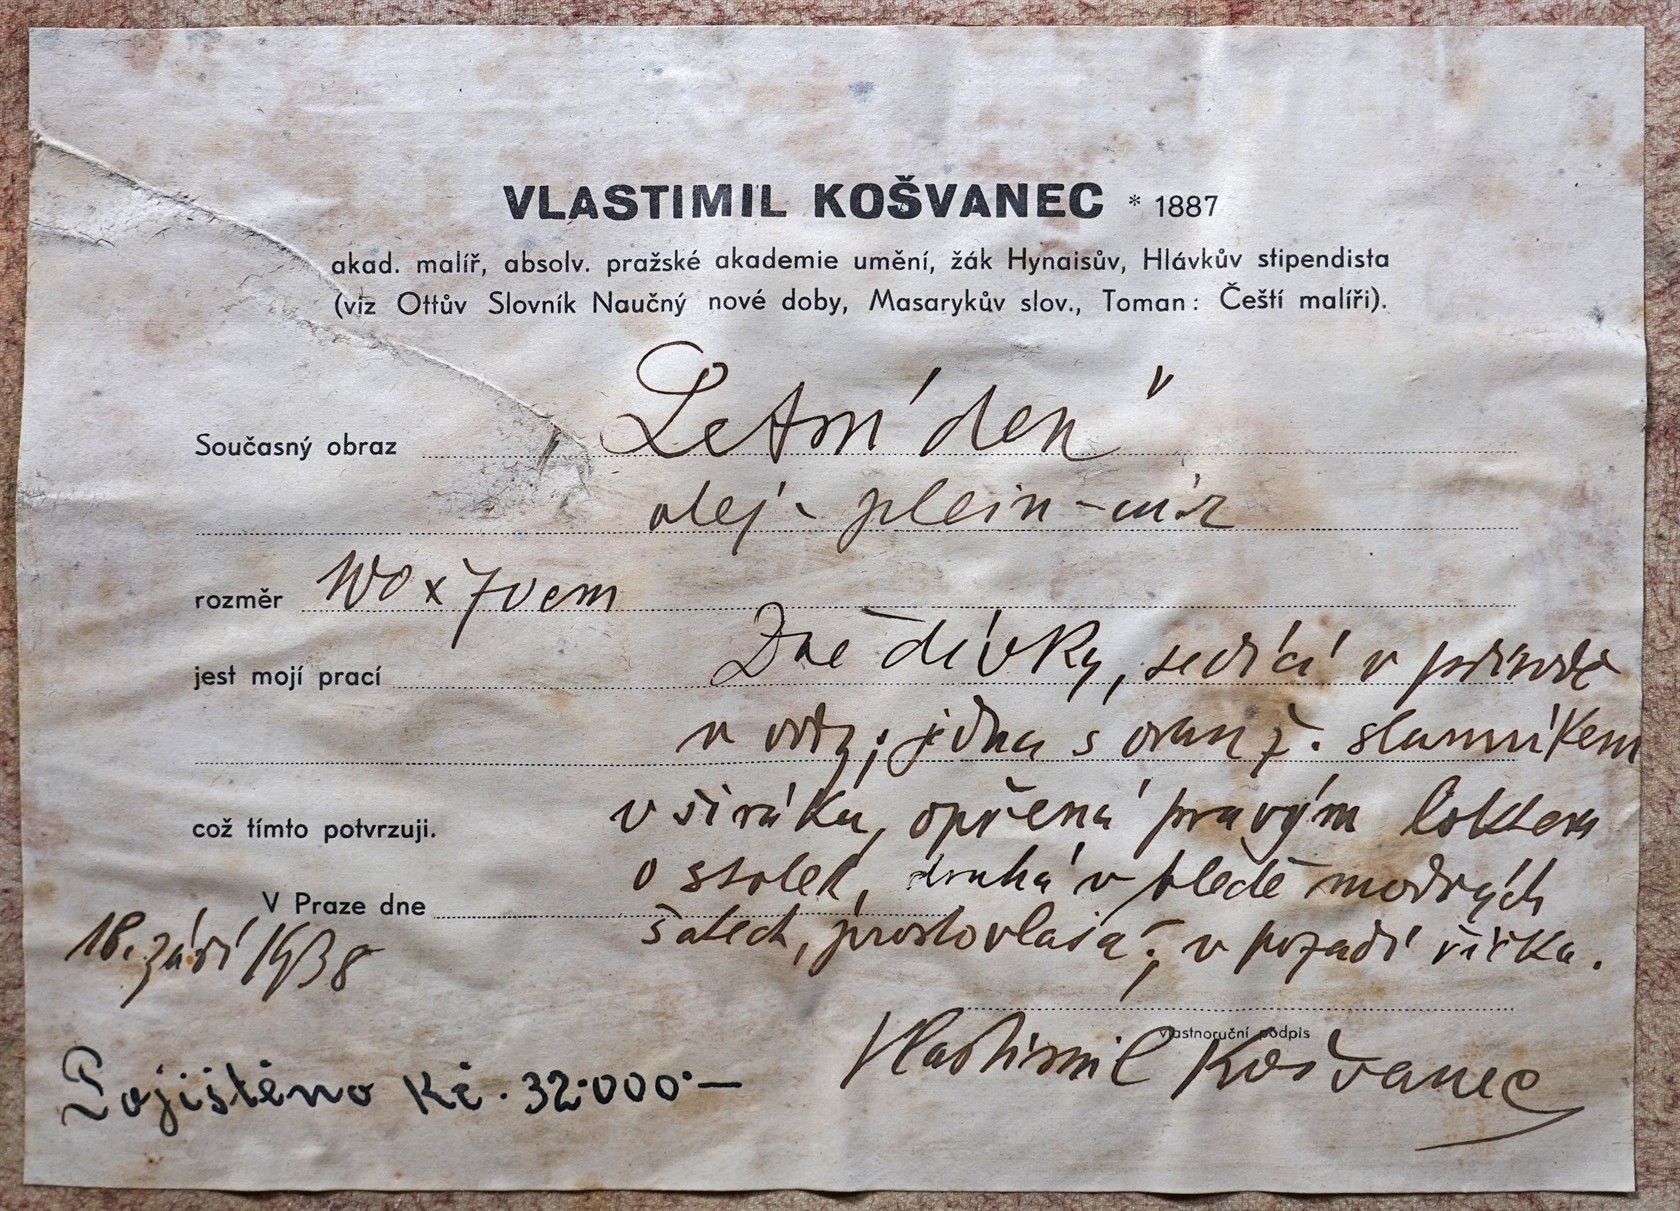 VLASTIMIL KOŠVANEC * 1887
akad. malíř, absolv. pražské akademie umění, žák Hynaisův, Hlávkův stipendista
(viz Ottův Slovník Naučný nové doby, Masarykův slov., Toman: Čeští malíři).
Současný obraz „Letní den"
olej - plein-air
rozměr 100 x 70 cm
jest mojí prací Dvě dívky, sedící v přírodě
u vody; jedna s oranž. slunníkem
v širáku, opřená pravým loktem
což tímto potvrzuji.
o stolek, druhá v bleděmodrých
V Praze dne
šatech, prostovlasá; v pozadí říčka.
18. září 1938
vlastnoruční podpis
Vlastimil Košvanec
Pojištěno Kč. 32·000·—